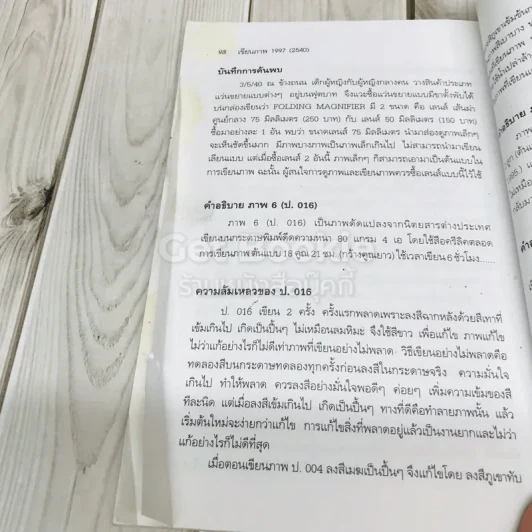 98 เขียนภาพ 1997 (2540)
บันทึกการค้นพบ
3/5/40 ณ ข้างถนน เด็กผู้หญิงกับผู้หญิงกลางคน วางสินค้าประเภท
แว่นขยายแบบต่างๆ อยู่บนฟุตบาท จึงแวะซื้อแว่นขยายแบบมีขาตั้งพับได้
บนกล่องเขียนว่า FOLDING MAGNIFIER มี 2 ขนาด คือ เลนส์ เส้นผ่า
ศูนย์กลาง 75 มิลลิเมตร (250 บาท) กับ เลนส์ 50 มิลลิเมตร (150 บาท)
ซื้อมาอย่างละ 1 อัน พบว่า ขนาดเลนส์ 75 มิลลิเมตร นำมาส่องดูภาพเล็กๆ
จะเห็นชัดขึ้นมาก มีภาพบางภาพเป็นภาพเล็กเกินไป ไม่สามารถนำมาเขียน
เลียนแบบ แต่เมื่อซื้อเลนส์ 2 อันนี้ ภาพเล็กๆ ก็สามารถเอามาเป็นต้นแบบใน
การเขียนภาพ ฉะนั้น ผู้สนใจการดูภาพและเขียนภาพควรซื้อเลนส์แบบนี้ไว้ใช้
คำอธิบาย ภาพ 6 (ป. 016)
ภาพ 6 (ป. 016) เป็นภาพดัดแปลงจากนิตยสารต่างประเทศ
เขียนบนกระดาษพิมพ์ดีดความหนา 80 แกรม 4 เอ โดยใช้สีอคริลิคตลอด
การเขียนภาพ ต้นแบบ 18 คูณ 21 ซม. (กว้างคูณยาว) ใช้เวลาเขียน 6 ชั่วโมง.....
Geo Bookie
ร้านหนังสือบุ๊คกี้
ความล้มเหลวของ ป. 016
ป. 016 เขียน 2 ครั้ง ครั้งแรกพลาดเพราะลงสีฉากหลังด้วยสีเทาที่
เข้มเกินไป เกิดเป็นปื้นๆ ไม่เหมือนลมหิมะ จึงใช้สีขาว เพื่อแก้ไข ภาพแก้ไข
ไม่ว่าแก้อย่างไรก็ไม่ดีเท่าภาพที่เขียนอย่างไม่พลาด วิธีเขียนอย่างไม่พลาดคือ
ทดลองสีบนกระดาษทดลองทุกครั้งก่อนลงสีในกระดาษจริง ความมั่นใจ
เกินไป ทำให้พลาด ควรลงสีอย่างมั่นใจพอดีๆ ค่อยๆ เพิ่มความเข้มของสี
ทีละนิด แต่เมื่อลงสีเข้มเกินไป เกิดเป็นปื้นๆ ทางที่ดีคือทำลายภาพนั้น แล้ว
เริ่มต้นใหม่จะง่ายกว่าแก้ไข การแก้ไขสิ่งที่พลาดอยู่แล้วเป็นงานยากและไม่ว่า
แก้อย่างไรก็ไม่ดีที่สุด
เมื่อตอนเขียนภาพ ป. 004 ลงสีเมฆเป็นปื้นๆ จึงแก้ไขโดย ลงสีภูเขาทับ